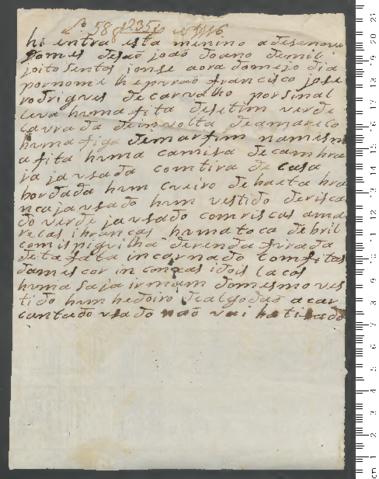 L. 58 f. 235
hi entra esta menino a desanove
do mes de são joão do ano de mil
joito sentos ionse aora do mejo dia
por nome lhe porão francisco jose
rodrigues de carvalho por sinal
leva huma fita de setim verde
lavrada de in volta de amarelo
huma figa de marfim na mesm
a fita huma camisa de cambra
ja ja usada com tira de casa
bordada hum cueiro de baeta bra
nca ja usado hum vestido de risca
do verde ja usado com riscas ama
relas i brancas huma toca de bril
com ispiguilha de renda forada
de tafeta incarnado com fitas
da mes cor in con as idois lacos
huma saja irmam do mesmo ves
tido hum de algodão acar
cantado usado não vai batisado